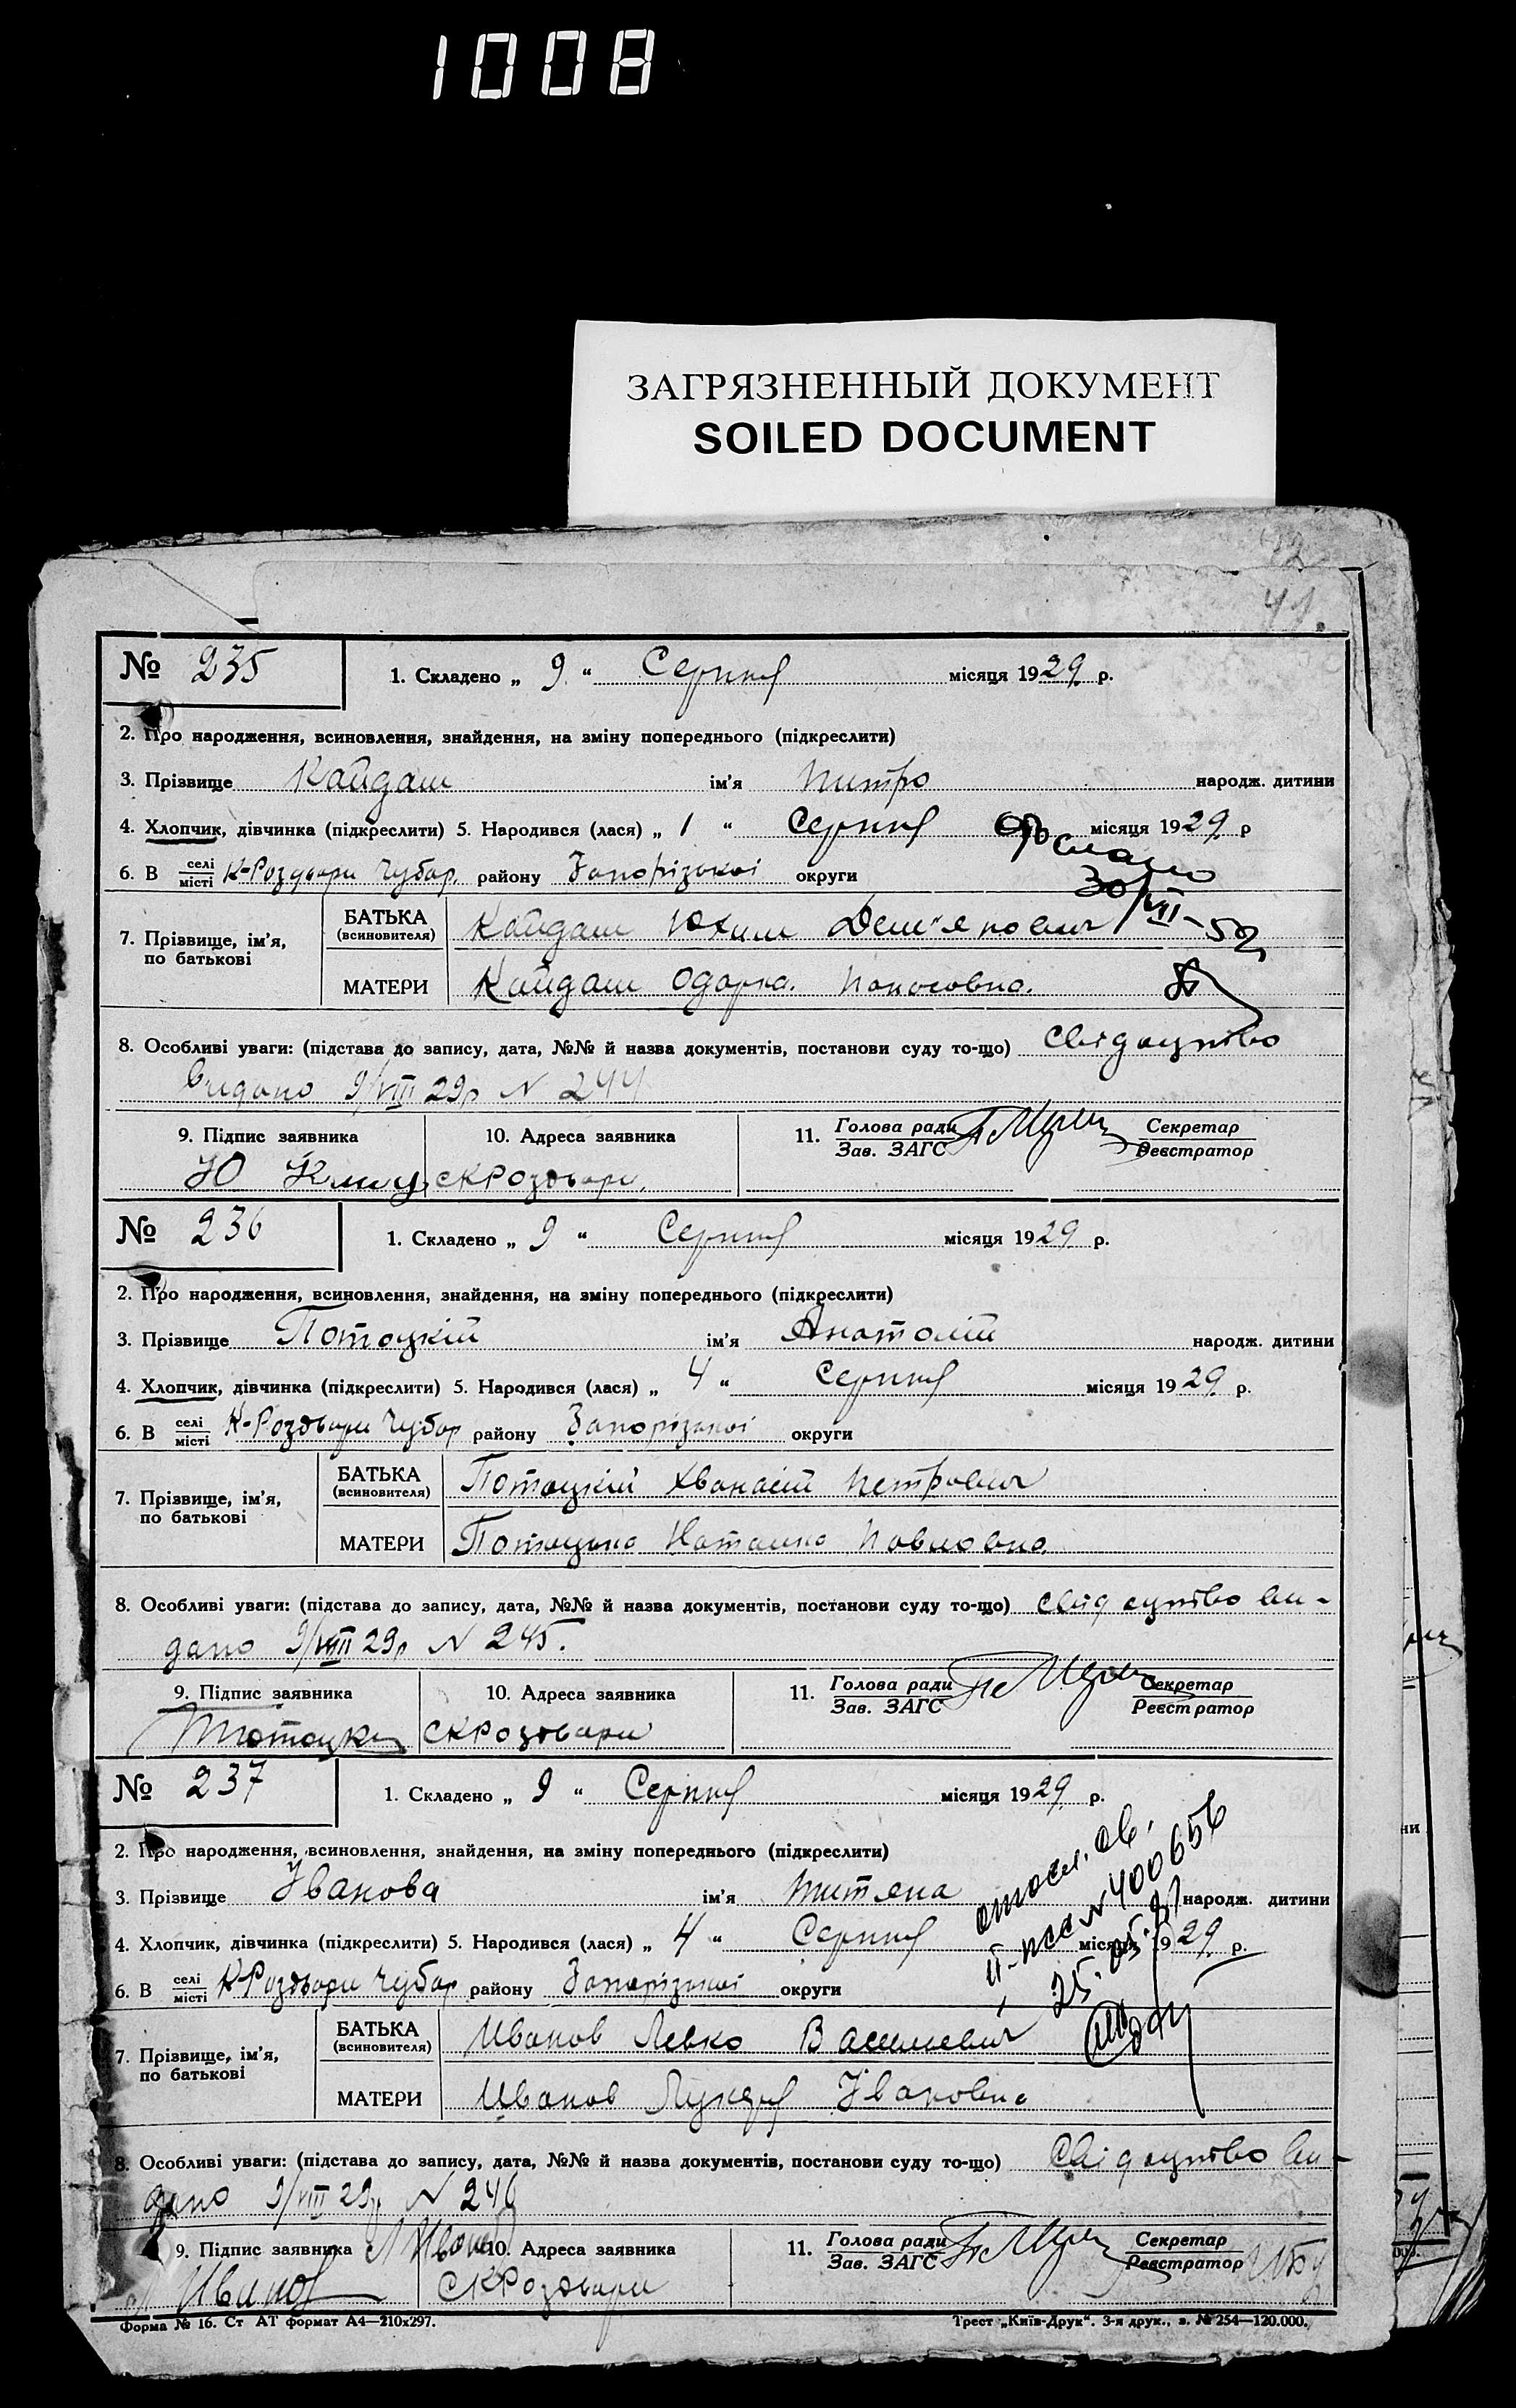 1008
ЗАГРЯЗНЕННЫЙ ДОКУМЕНТ
SOILED DOCUMENT
№ 235 1. Складено „ 9 “ Серпня місяця 1929 р.
2. Про народження, всиновлення, знайдення, на зміну попереднього (підкреслити)
3. Прізвище Кайдаш ім'я Питро народж. дитини
4. Хлопчик, дівчинка (підкреслити) 5. Народився (лася) „ 1 “ Серпня місяця 1929 р
6. В селі місті К-Роздори Чубар. району Запорізької округи
30/VII-52
7. Прізвище, ім'я, по батькові
БАТЬКА (всиновителя) Кайдаш Юхим Дем'янович
МАТЕРИ Кайдаш Одарка
8. Особливі уваги: (підстава до запису, дата, №№ й назва документів, постанови суду то-що) Свідоцтво
видано 9/VIII 29р N 244
9. Підпис заявника 10. Адреса заявника 11. Голова ради Зав. ЗАГС Секретар Реєстратор
Ю СКРоздори
№ 236 1. Складено „ 9 “ Серпня місяця 1929 р.
2. Про народження, всиновлення, знайдення, на зміну попереднього (підкреслити)
3. Прізвище Потоцкій ім'я Анатолій народж. дитини
4. Хлопчик, дівчинка (підкреслити) 5. Народився (лася) „ 4 “ Серпня місяця 1929 р.
6. В селі місті К-Роздори Чубар району Запорізької округи
7. Прізвище, ім'я, по батькові
БАТЬКА (всиновителя) Потоцкій Хванасій Петрович
МАТЕРИ Потоцька Наталка Павловна
8. Особливі уваги: (підстава до запису, дата, №№ й назва документів, постанови суду то-що) свідоцтво ви-
дано 9/VIII 29р N 245.
9. Підпис заявника 10. Адреса заявника 11. Голова ради Зав. ЗАГС Секретар Реєстратор
СКРоздори
№ 237 1. Складено „ 9 “ Серпня місяця 1929 р.
2. Про народження, всиновлення, знайдення, на зміну попереднього (підкреслити)
3. Прізвище Іванова ім'я Титяна народж. дитини
4. Хлопчик, дівчинка (підкреслити) 5. Народився (лася) „ 4 “ Серпня місяця 1929 р.
6. В селі місті К-Роздори Чубар району Запорізької округи
7. Прізвище, ім'я, по батькові
БАТЬКА (всиновителя) Иванов Левко Василиевич
МАТЕРИ Иванов Івановна
8. Особливі уваги: (підстава до запису, дата, №№ й назва документів, постанови суду то-що) Свідоцтво ви-
дано 9/VIII 29р N 246
9. Підпис заявника 10. Адреса заявника 11. Голова ради Зав. ЗАГС Секретар Реєстратор
Иванов СКРоздори
Форма № 16. Ст АТ формат А4—210х297. Трест „Київ-Друк“. 3-я друк., з. № 254—120.000.